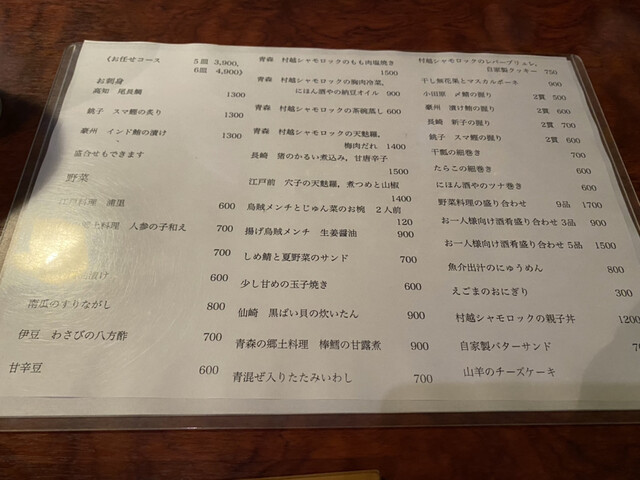 《お任せコース 5皿 3,900、
6皿 4,900》
お刺身
高知 尾長鯛 1300
銚子 スマ鰹の炙り 1300
豪州 インド鮪の漬け 1300
盛合せもできます
野菜
江戸料理 浦里 600
土料理 人参の子和え 700
漬け 600
南瓜のすりながし 800
伊豆 わさびの八方酢 700
甘辛豆 600
青森 村越シャモロックのもも肉塩焼き
1500
青森 村越シャモロックの胸肉冷菜、
にほん酒やの納豆オイル 900
青森 村越シャモロックの茶碗蒸し 600
青森 村越シャモロックの天麩羅、
梅肉だれ 1400
長崎 猪のかるい煮込み、甘唐辛子
1500
江戸前 穴子の天麩羅、煮つめと山椒
1400
烏賊メンチとじゅん菜のお椀 2人前
120
揚げ烏賊メンチ 生姜醤油 900
しめ鯖と夏野菜のサンド 700
少し甘めの玉子焼き 600
仙崎 黒ばい貝の炊いたん 900
青森の郷土料理 棒鱈の甘露煮 900
青混ぜ入りたたみいわし 700
村越シャモロックのレバーブリュレ、
自家製クッキー 750
干し無花果とマスカルポーネ 900
小田原 〆鯵の握り 2貫 500
豪州 漬け鮪の握り 2貫 600
長崎 新子の握り 2貫 700
銚子 スマ鰹の握り 2貫 600
干瓢の細巻き 700
たらこの細巻き 600
にほん酒やのツナ巻き 600
野菜料理の盛り合わせ 9品 1700
お一人様向け酒肴盛り合わせ 3品 900
お一人様向け酒肴盛り合わせ 5品 1500
魚介出汁のにゅうめん 800
えごまのおにぎり 300
村越シャモロックの親子丼 1200
自家製バターサンド
山羊のチーズケーキ